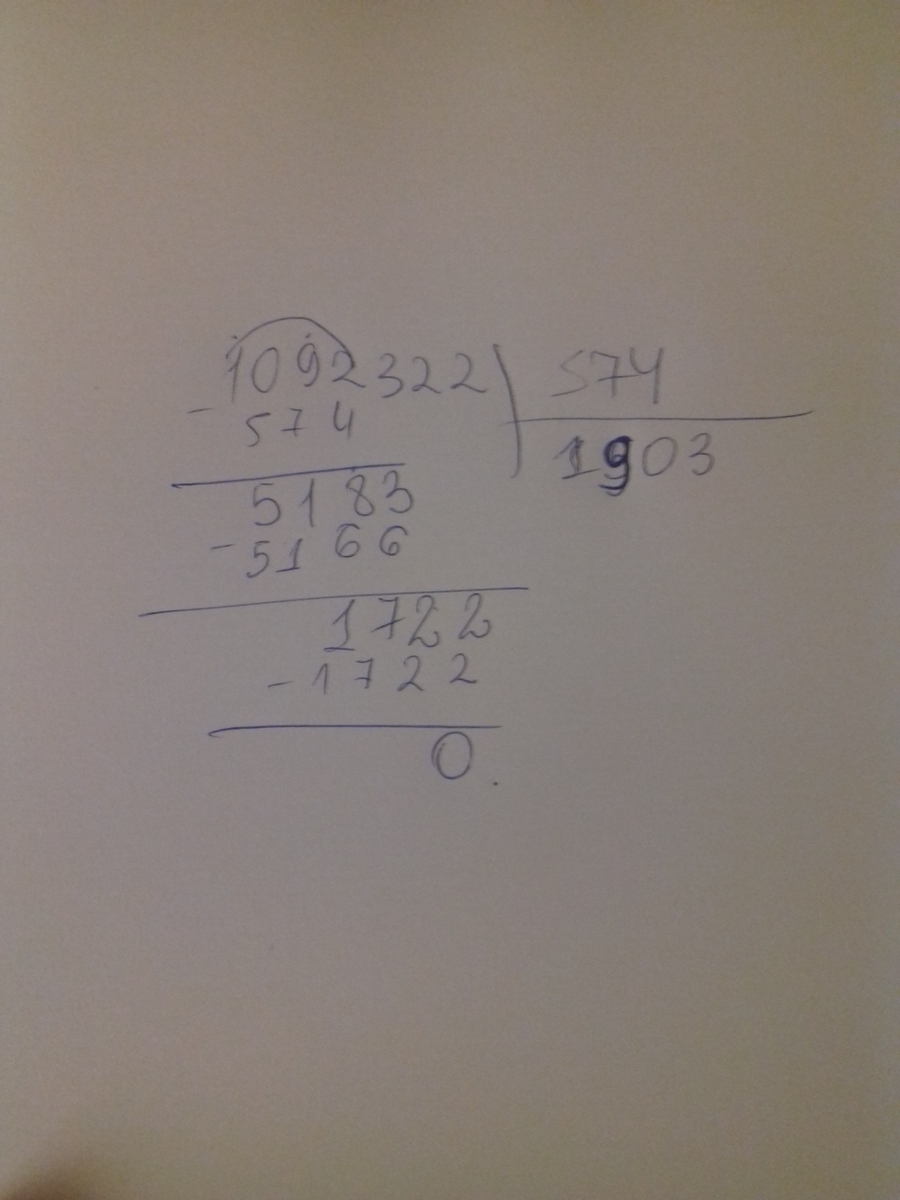 1092322 574
- 574 1903
5183
- 5166
1722
- 1722
0.